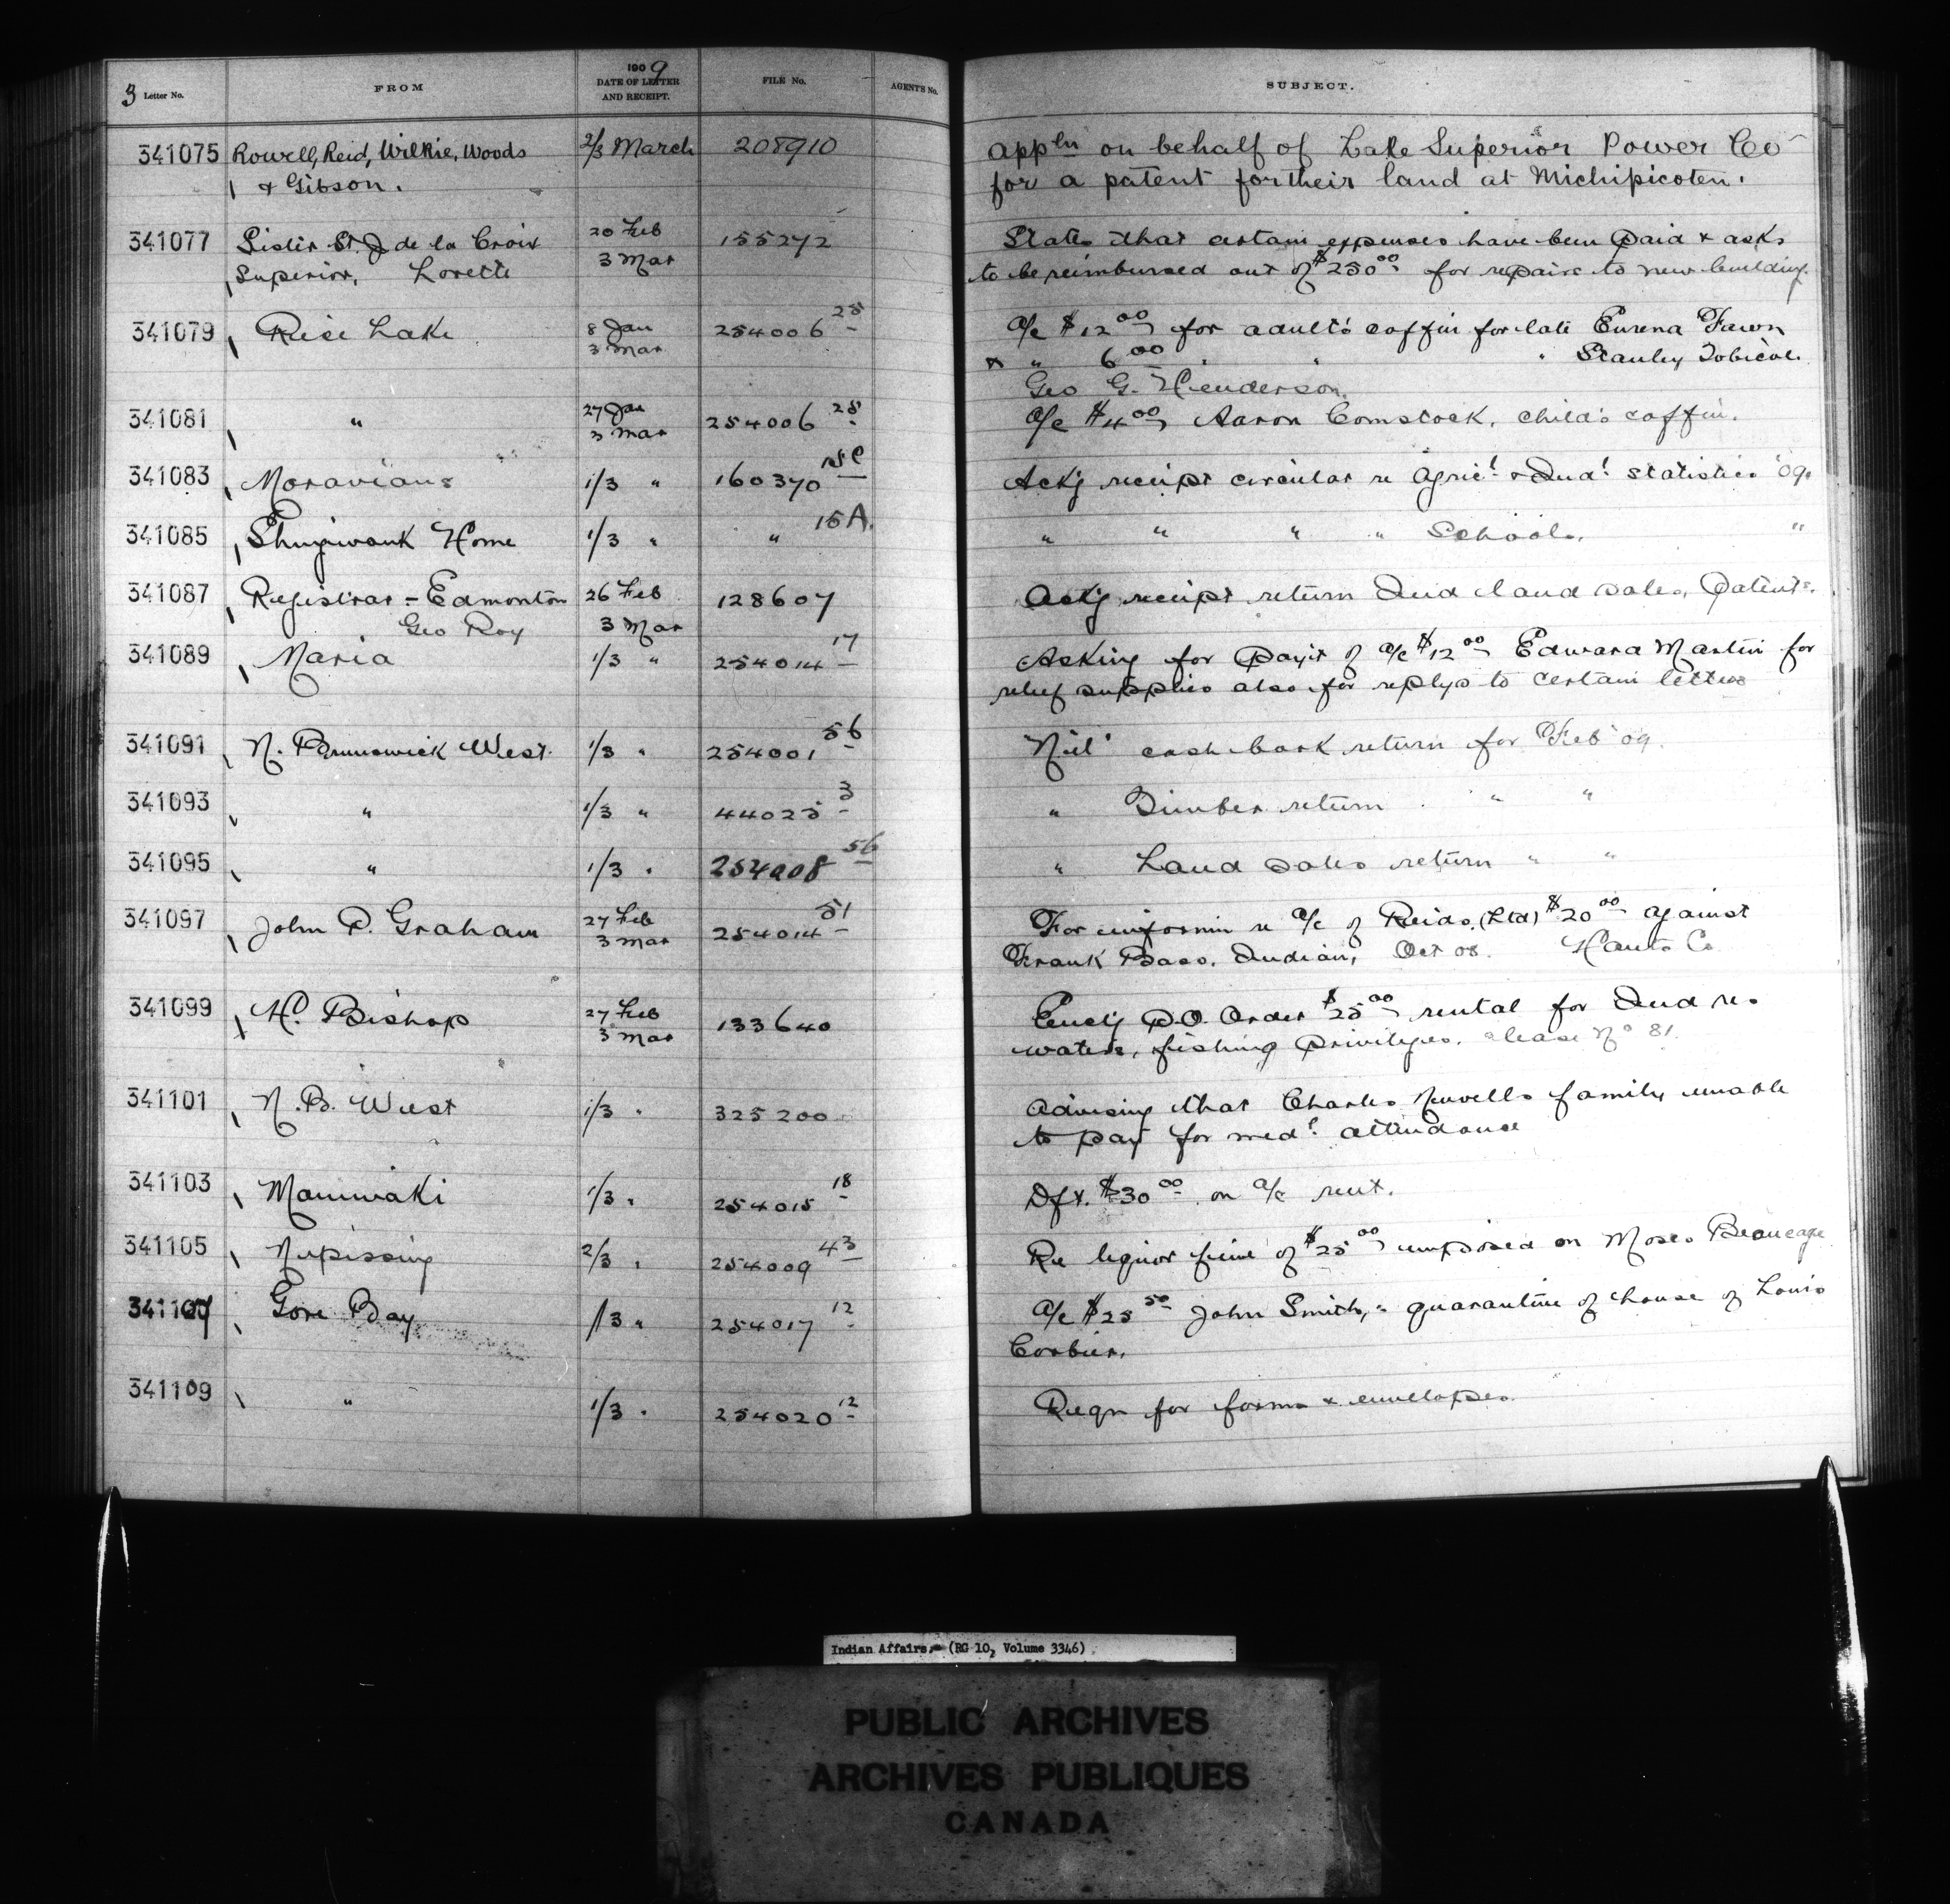 3 Letter No. FROM 1909 DATE OF LETTER AND RECEIPT. FILE No. AGENT'S No. SUBJECT.
341075 Rowell, Reid, Wilkie, Woods 2/3 March 208910 Appln on behalf of Lake Superior Power Co
& Gibson. for a patent for their land at Michipicoten.
341077 Sister St. J de la Croix 20 Feb 155272 States that certain expenses have been paid & asks
Superior, Lorette 3 Mar to be reimbursed out of $250 00 for repairs to new building.
341079 Rice Lake 8 Jan 254006 28 a/c $12 00 for adult's coffin for late Eurena Fawn
3 Mar & " 6 00 " " " Stanley Tobicoe.
Geo G. Henderson.
341081 " 27 Jan 254006 28 a/c $4 00, Aaron Comstock, child's coffin.
3 Mar
341083 Moravians 1/3 " 160370 15C Ackg receipt circular re Agricl & Indl statistics '09.
341085 Shingwauk Home 1/3 " " 15A. " " " " Schools, "
341087 Registrar - Edmonton 26 Feb 128607 Ackg receipt return Ind land sales, Patents.
Geo Roy 3 Mar
341089 Maria 1/3 " 254014 17 Asking for paym't of a/c $12 00 Edward Martin for
relief supplies also for replys to certain letters
341091 N. Brunswick West. 1/3 " 254001 56 "Nil" cash book return for Feb '09.
341093 " 1/3 " 44025 3 " Timber return " "
341095 " 1/3 " 254008 56 " Land sales return " "
341097 John P. Graham 27 Feb 254014 51 For informn re a/c of Reids, (Ltd) $20 00 against
3 Mar Frank Bass, Indian, Oct 08. Hants Co
341099 H. Bishop 27 Feb 133640 Enclg P.O. Order $25 00 rental for Ind res
3 Mar waters, fishing privileges. lease No 81.
341101 N.B. West 1/3 " 325200 Advising that Charles Newells family unable
to pay for medl attendance
341103 Maniwaki 1/3 " 254015 18 Dft. $30 00 on a/c rent.
341105 Nipissing 2/3 " 254009 43 Re liquor fine of $25 00 imposed on Moses Beaucage
341107 Gore Bay 1/3 " 254017 12 a/c $25 50 John Smith, " quarantine of house of Louis
Corbier.
341109 " 1/3 " 254020 12 Reqn for forms & envelopes.
Indian Affairs. (RG 10, Volume 3346)
PUBLIC ARCHIVES
ARCHIVES PUBLIQUES
CANADA